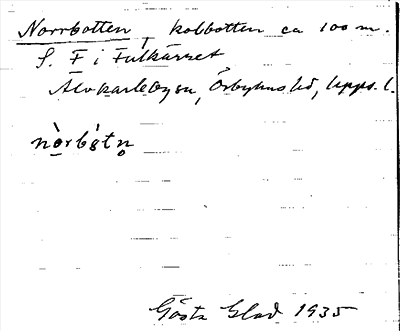 Norrbotten, kolbotten ca 100 m.
S. F i Fulkärret
Älvkarleby sn, Örbyhus hd, Upps. l.
nòrbòtn̥
Gösta Glad 1935